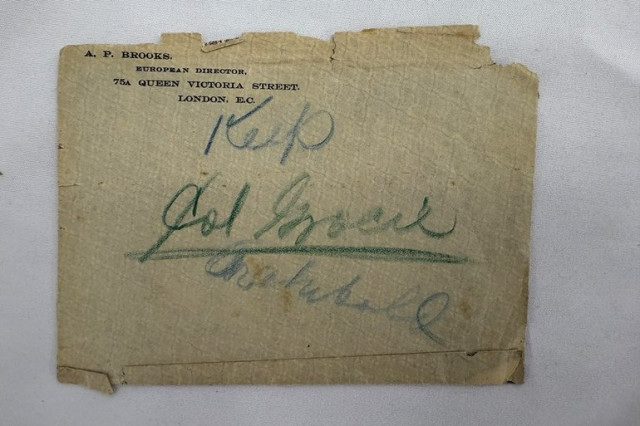 A. P. BROOKS.
EUROPEAN DIRECTOR,
75A QUEEN VICTORIA STREET.
LONDON, E.C.
Keep
Col Gracie
Archibald